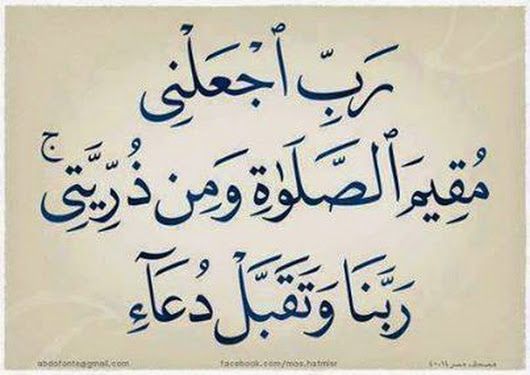 رَبِّ ٱجْعَلْنِى
مُقِيمَ ٱلصَّلَوٰةِ وَمِن ذُرِّيَّتِى ۚ
رَبَّنَا وَتَقَبَّلْ دُعَآءِ
abdofonte@gmail.com facebook.com/mos.hatmisr